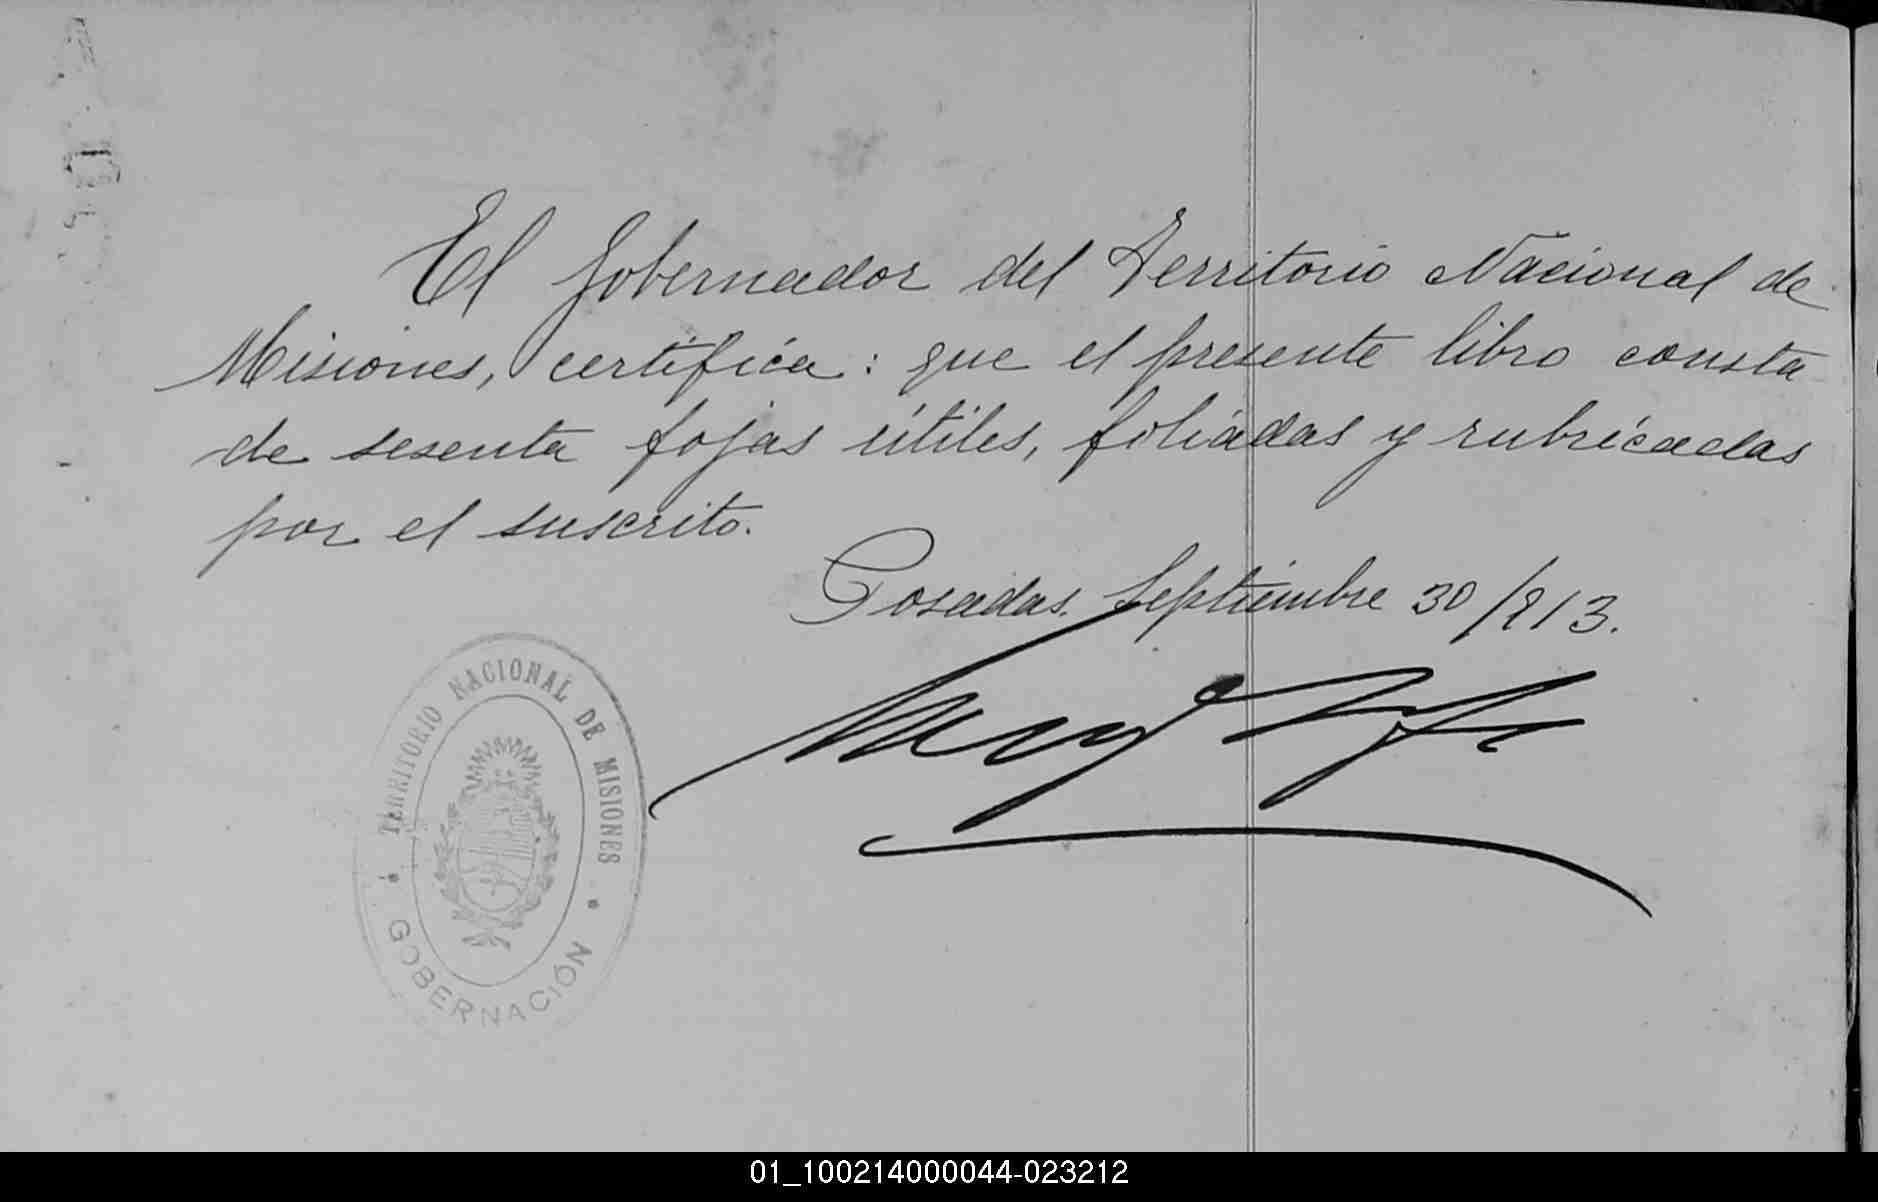 El Gobernador del Territorio Nacional de
Misiones, certifica: que el presente libro consta
de sesenta fojas útiles, foliadas y rubricadas
por el suscrito.
Posadas. Septiembre 30/913.
TERRITORIO NACIONAL DE MISIONES
GOBERNACIÓN
01_100214000044-023212